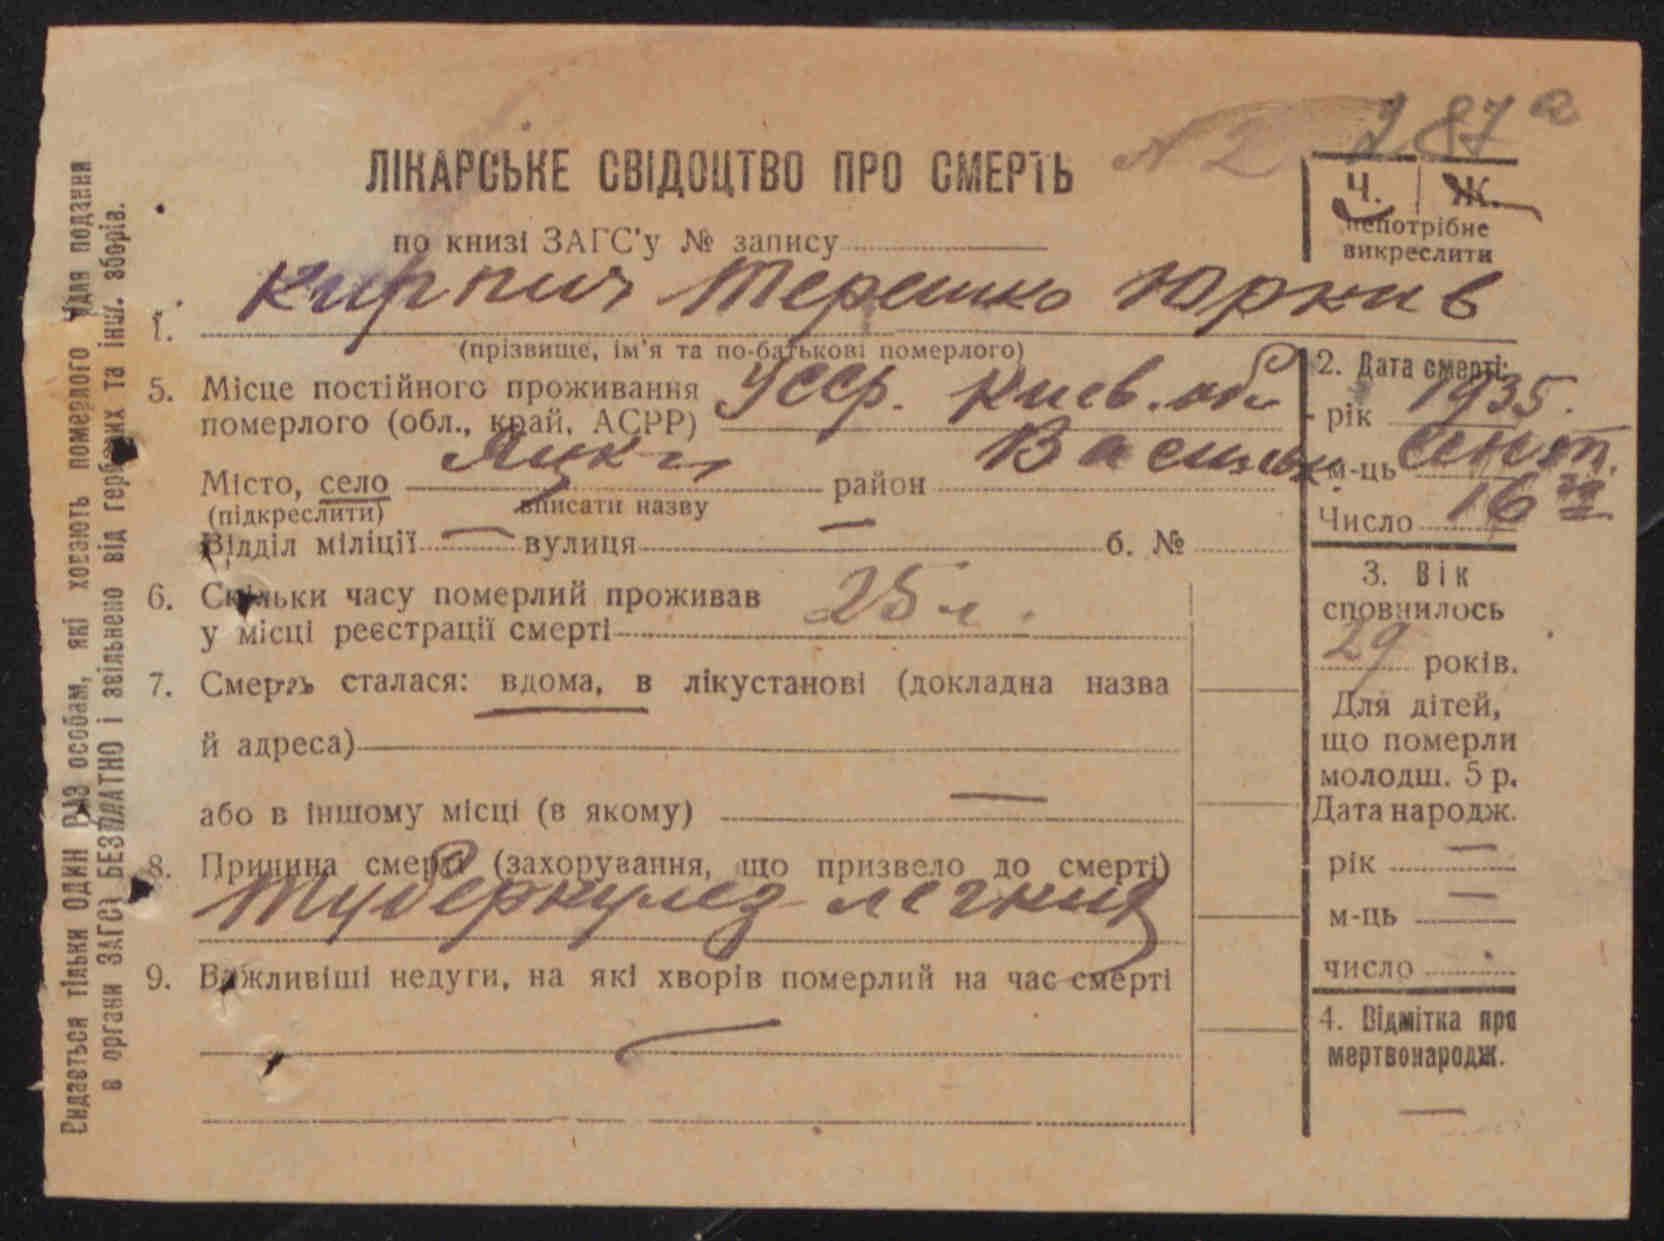 N 2
287а
ЛІКАРСЬКЕ СВІДОЦТВО ПРО СМЕРТЬ
Ч. Ж.
непотрібне
викреслити
по книзі ЗАГС'у № запису
1. Кирпич Терешко Юрків
(прізвище, ім'я та по-батькові померлого)
2. Дата смерті:
рік 1935.
м-ць сент.
Число 16го
5. Місце постійного проживання
померлого (обл., край, АСРР) Усср. Киев. обл
Місто, село Яцки район Васильк.
(підкреслити) вписати назву
Відділ міліції — вулиця — б. №
6. Скільки часу померлий проживав
у місці реєстрації смерті 25 л.
3. Вік
сповнилось
29 років.
Для дітей,
що померли
молодш. 5 р.
Дата народж.
рік —
м-ць —
число
7. Смерть сталася: вдома, в лікустанові (докладна назва
й адреса)
або в іншому місці (в якому) —
8. Причина смерті (захорування, що призвело до смерті)
Туберкулез легких
9. Важливіші недуги, на які хворів померлий на час смерті
—
4. Відмітка про
мертвонародж.
—
Видається тільки ОДИН РАЗ особам, які ховають померлого для подання
в органи ЗАГСУ БЕЗПЛАТНО і звільнено від гербових та інш. зборів.